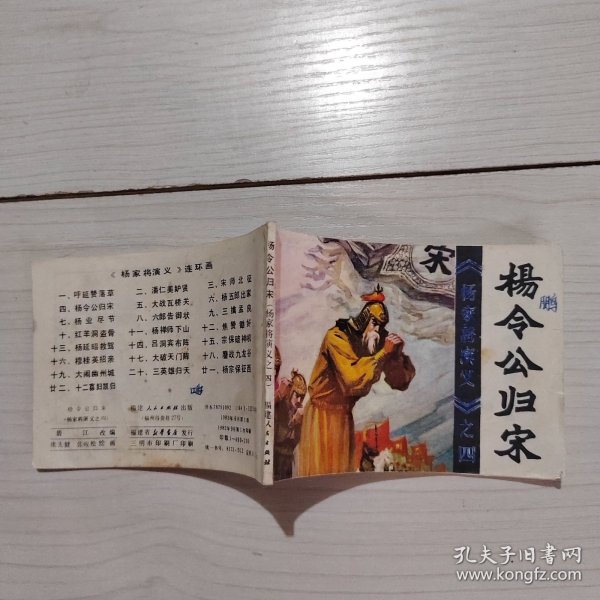 《杨家将演义》连环画
一、呼延赞落草
二、潘仁美妒贤
三、宋师北征
四、杨令公归宋
五、大战瓦桥关
六、杨五郎出家
七、杨业尽节
八、六郎告御状
九、三擒孟良
十、红羊洞盗骨
十一、杨禅师下山
十二、焦赞徽奸
十三、杨延昭救驾
十四、吕洞宾布阵
十五、宗保破神机
十六、穆桂英招亲
十七、大破天门阵
十八、鏖战九龙谷
十九、大闹幽州城
二十、三英雄归天
廿一、杨宗保征西
廿二、十二寡妇凯归
杨令公归宋
(杨家将演义之四)
福建人民出版社出版
福建省新华书店发行
三明市印刷厂印刷
杨令公归宋
(杨家将演义之四)
福建人民出版社
宋
楊令公归宋
《杨家将演义》之四
鹏
孔夫子旧书网
www.kongfz.com